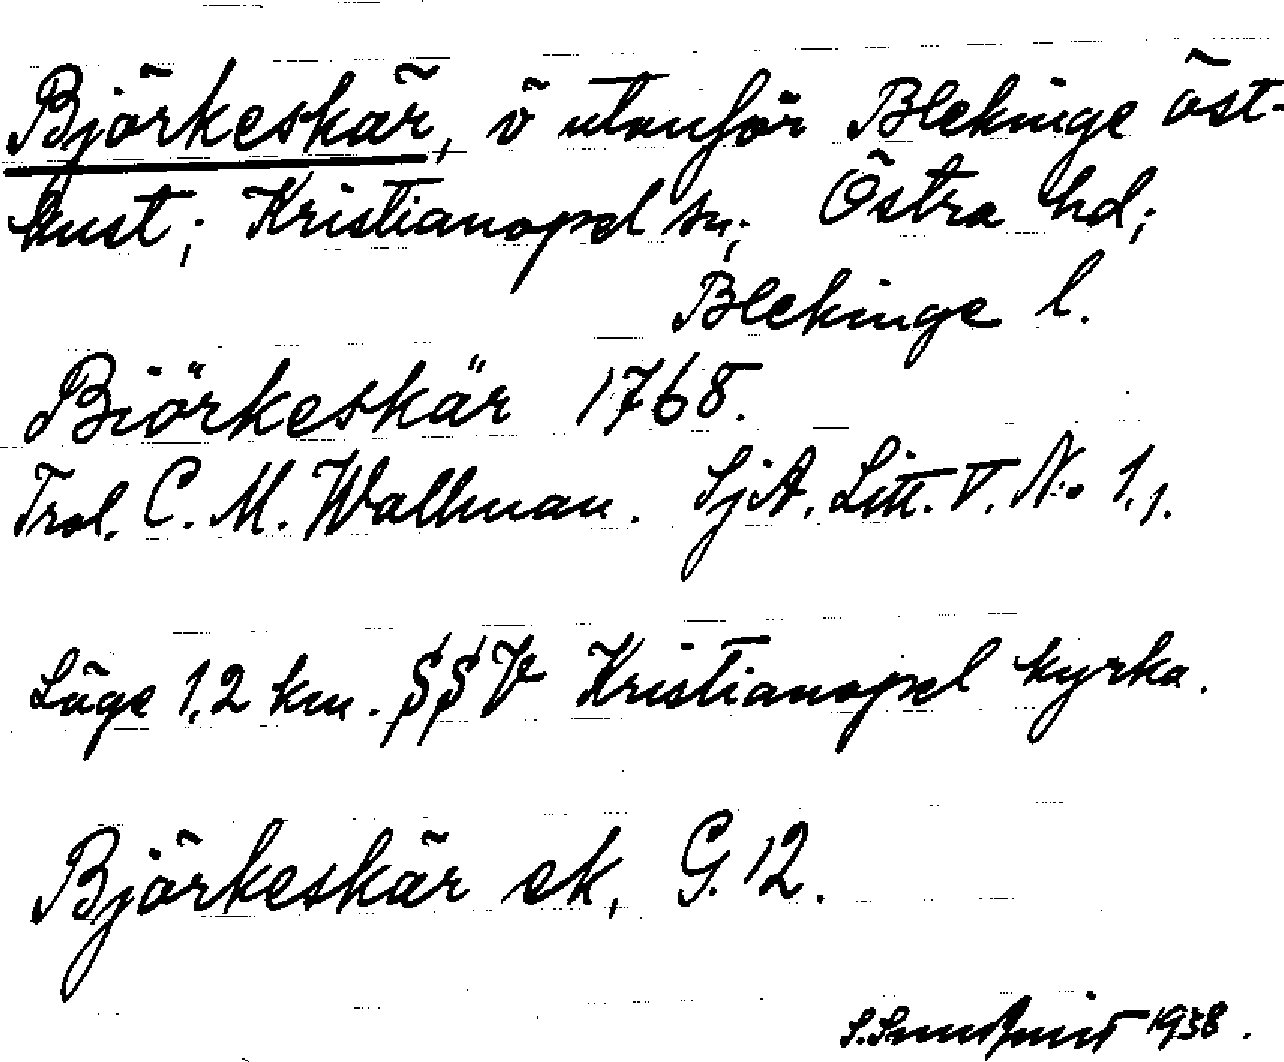 Björkeskär, ö utanför Blekinge öst-
kust; Kristianopel sn; Östra hd;
Blekinge l.
Biörkeskär 1768.
C. M. Wallman. SjA. Litt. V. No 1.
Läge 1,2 km. SSV Kristianopel kyrka.
Björkeskär ek, G. 12.
S. Sundquist 1938.